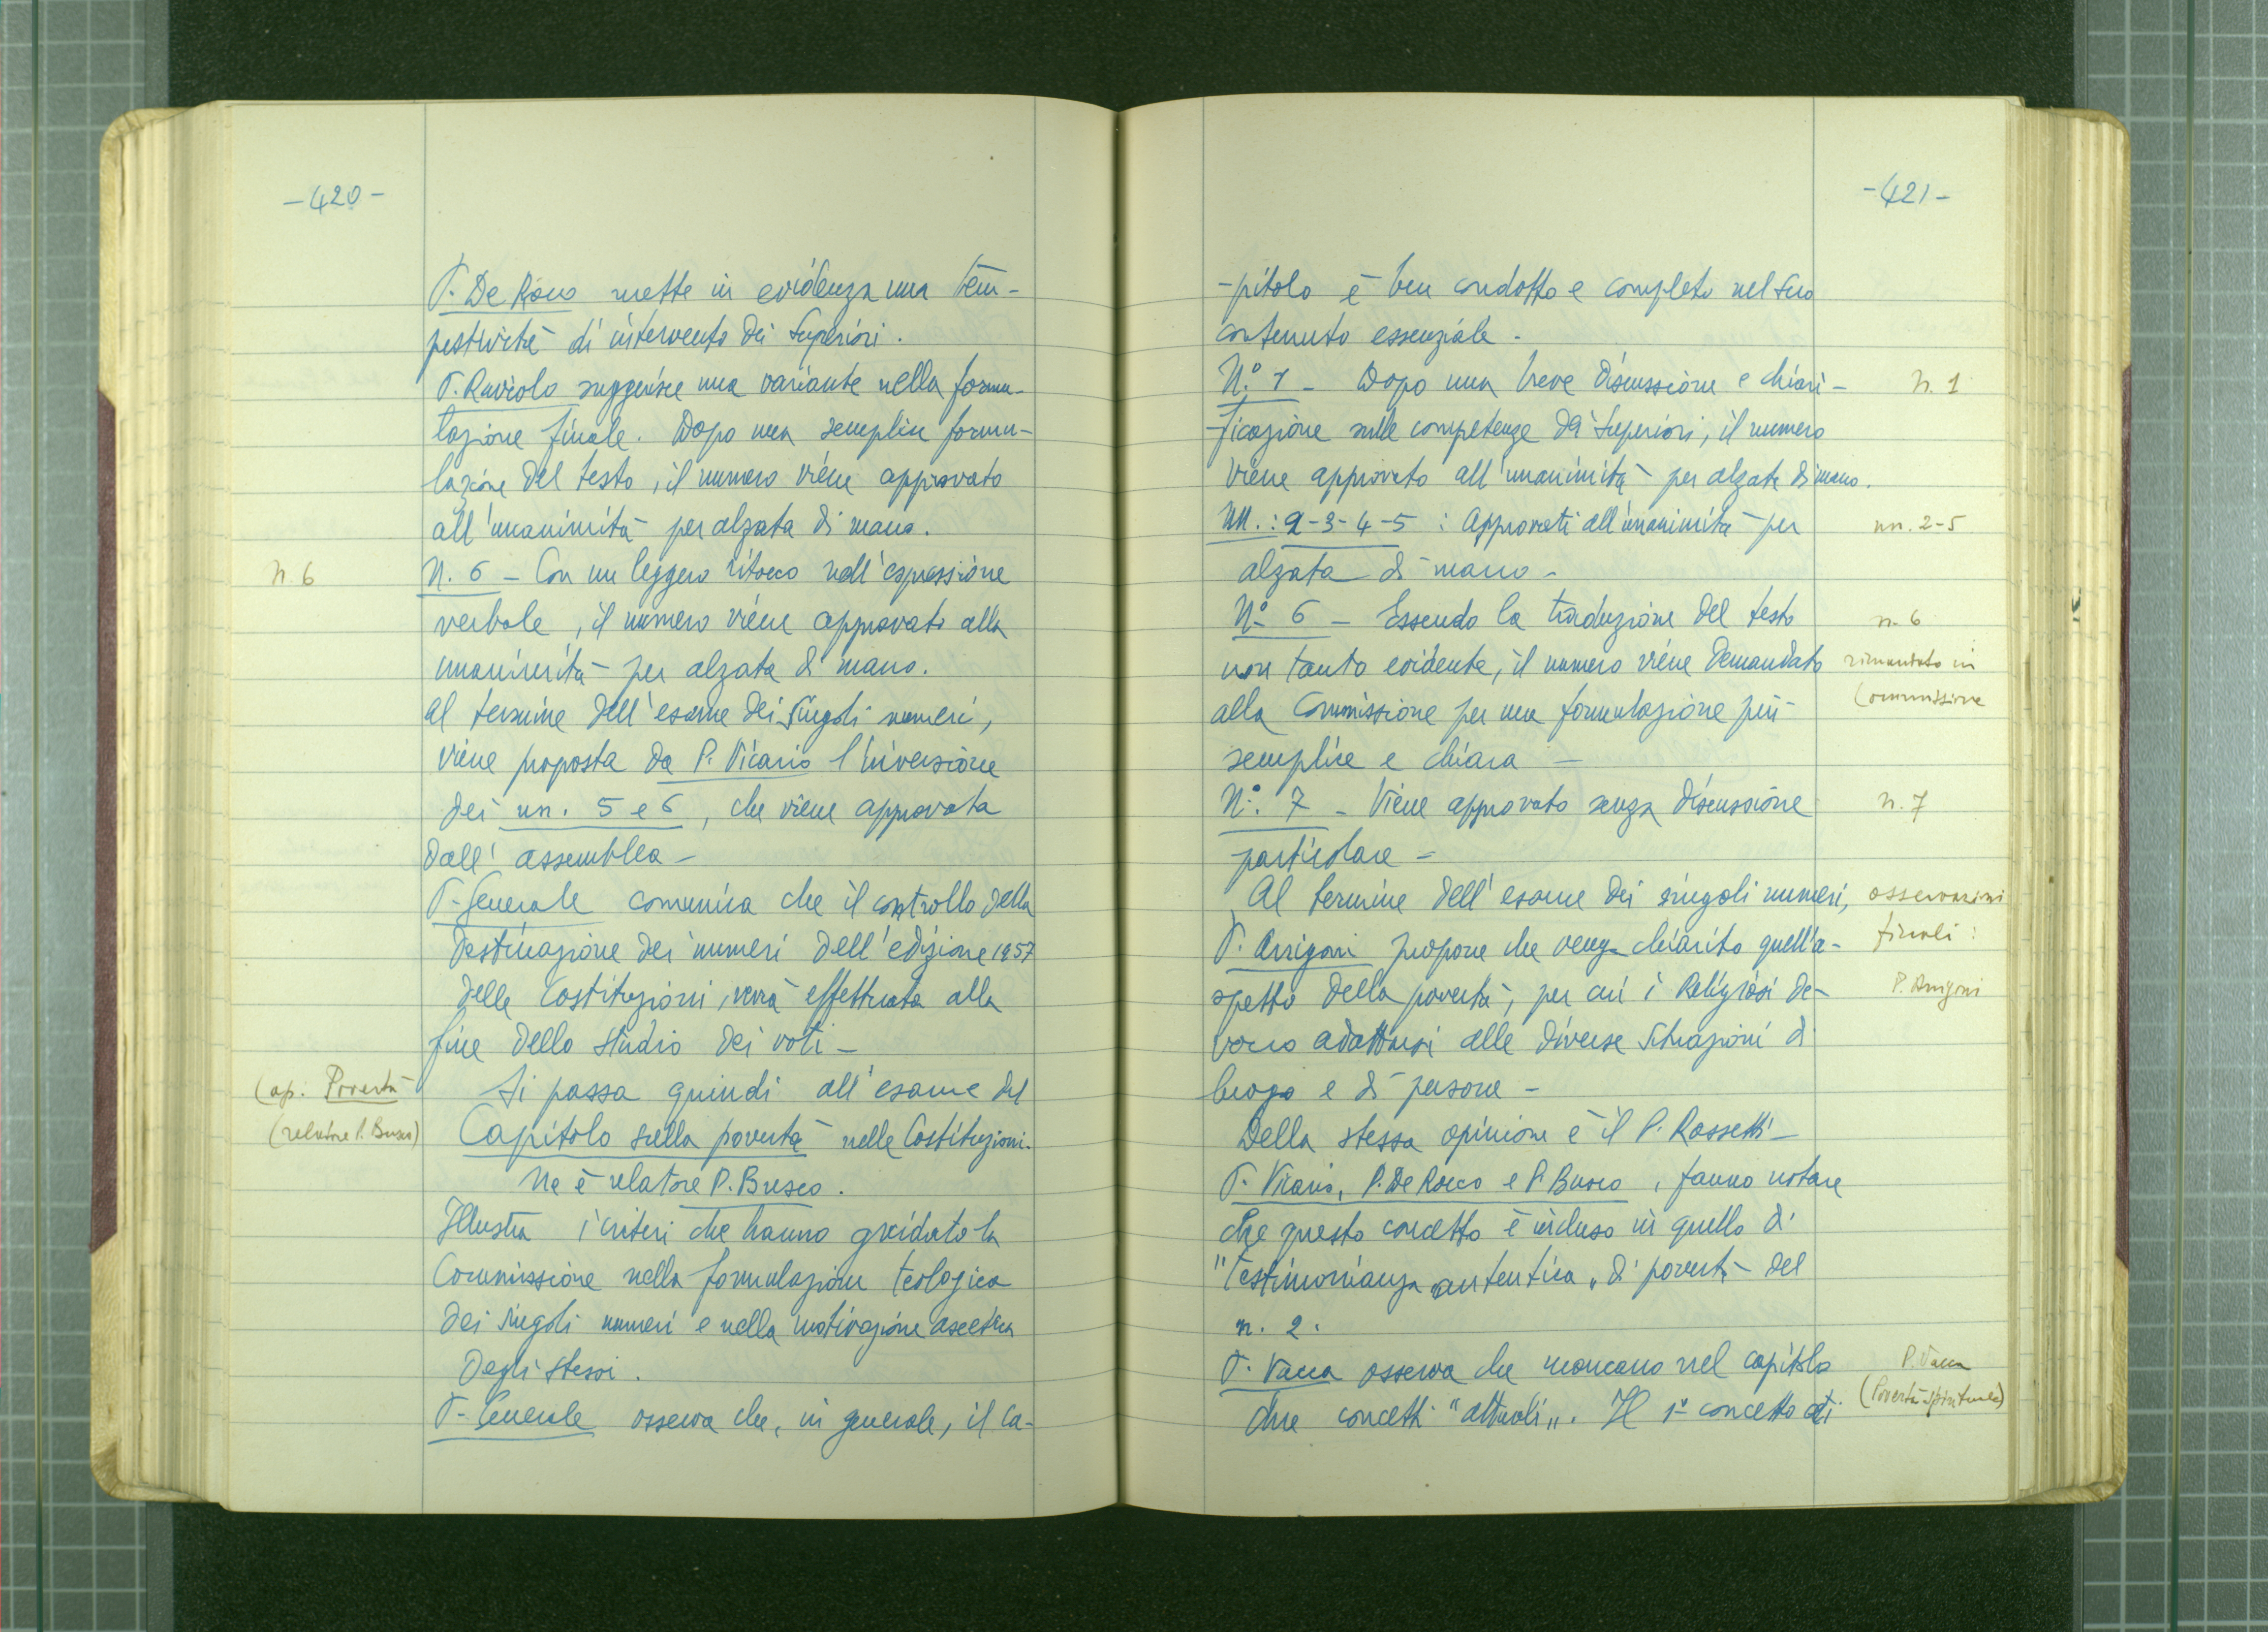 -420-
P. De Rocco mette in evidenza una tem-
pestività di intervento dei Superiori.
P. Raviolo suggerisce una variante nella formu-
lazione finale. Dopo una semplice formu-
lazione del testo, il numero viene approvato
all'unanimità per alzata di mano.
n. 6
N. 6 - Con un leggero ritocco nell'espressione
verbale, il numero viene approvato alla
unanimità per alzata di mano.
Al termine dell'esame dei singoli numeri,
viene proposta da P. Vicario l'inversione
dei nn. 5 e 6, che viene approvata
dall'assemblea -
P. Generale comunica che il controllo della
destinazione dei numeri dell'edizione 1957
delle Costituzioni, verrà effettuata alla
fine dello studio dei voti -
Cap. Povertà
Si passa quindi all'esame del
(relatore P. Busco)
Capitolo sulla povertà nelle Costituzioni.
Ne è relatore P. Busco.
Illustra i criteri che hanno guidato la
Commissione nella formulazione teologica
dei singoli numeri e nella motivazione ascetica
degli stessi.
P. Generale osserva che, in generale, il ca-
-421-
-pitolo è ben condotto e completo nel suo
contenuto essenziale -
N.° 1 - Dopo una breve discussione e chiari-
n. 1
ficazione sulle competenze dei Superiori, il numero
viene approvato all'unanimità per alzata di mano.
NN.: 2-3-4-5 : Approvati all'unanimità per
nn. 2-5
alzata di mano -
N° 6 - Essendo la traduzione del testo
n. 6
non tanto evidente, il numero viene demandato
rimandato in
alla Commissione per una formulazione più
Commissione
semplice e chiara -
N°. 7 - Viene approvato senza discussione
n. 7
particolare -
Al termine dell'esame dei singoli numeri,
osservazioni
P. Arrigoni propone che venga chiarito quell'a-
finali:
spetto della povertà, per cui i Religiosi de-
P. Arrigoni
vono adattarsi alle diverse situazioni di
luogo e di persone -
Della stessa opinione è il P. Rossetti -
P. Vicario, P. De Rocco e P. Busco, fanno notare
che questo concetto è incluso in quello di
"Testimonianza autentica" di povertà del
n. 2.
P. Vacca osserva che mancano nel capitolo
P. Vacca
due concetti "attuali". Il 1° concetto di
(Povertà spirituale)